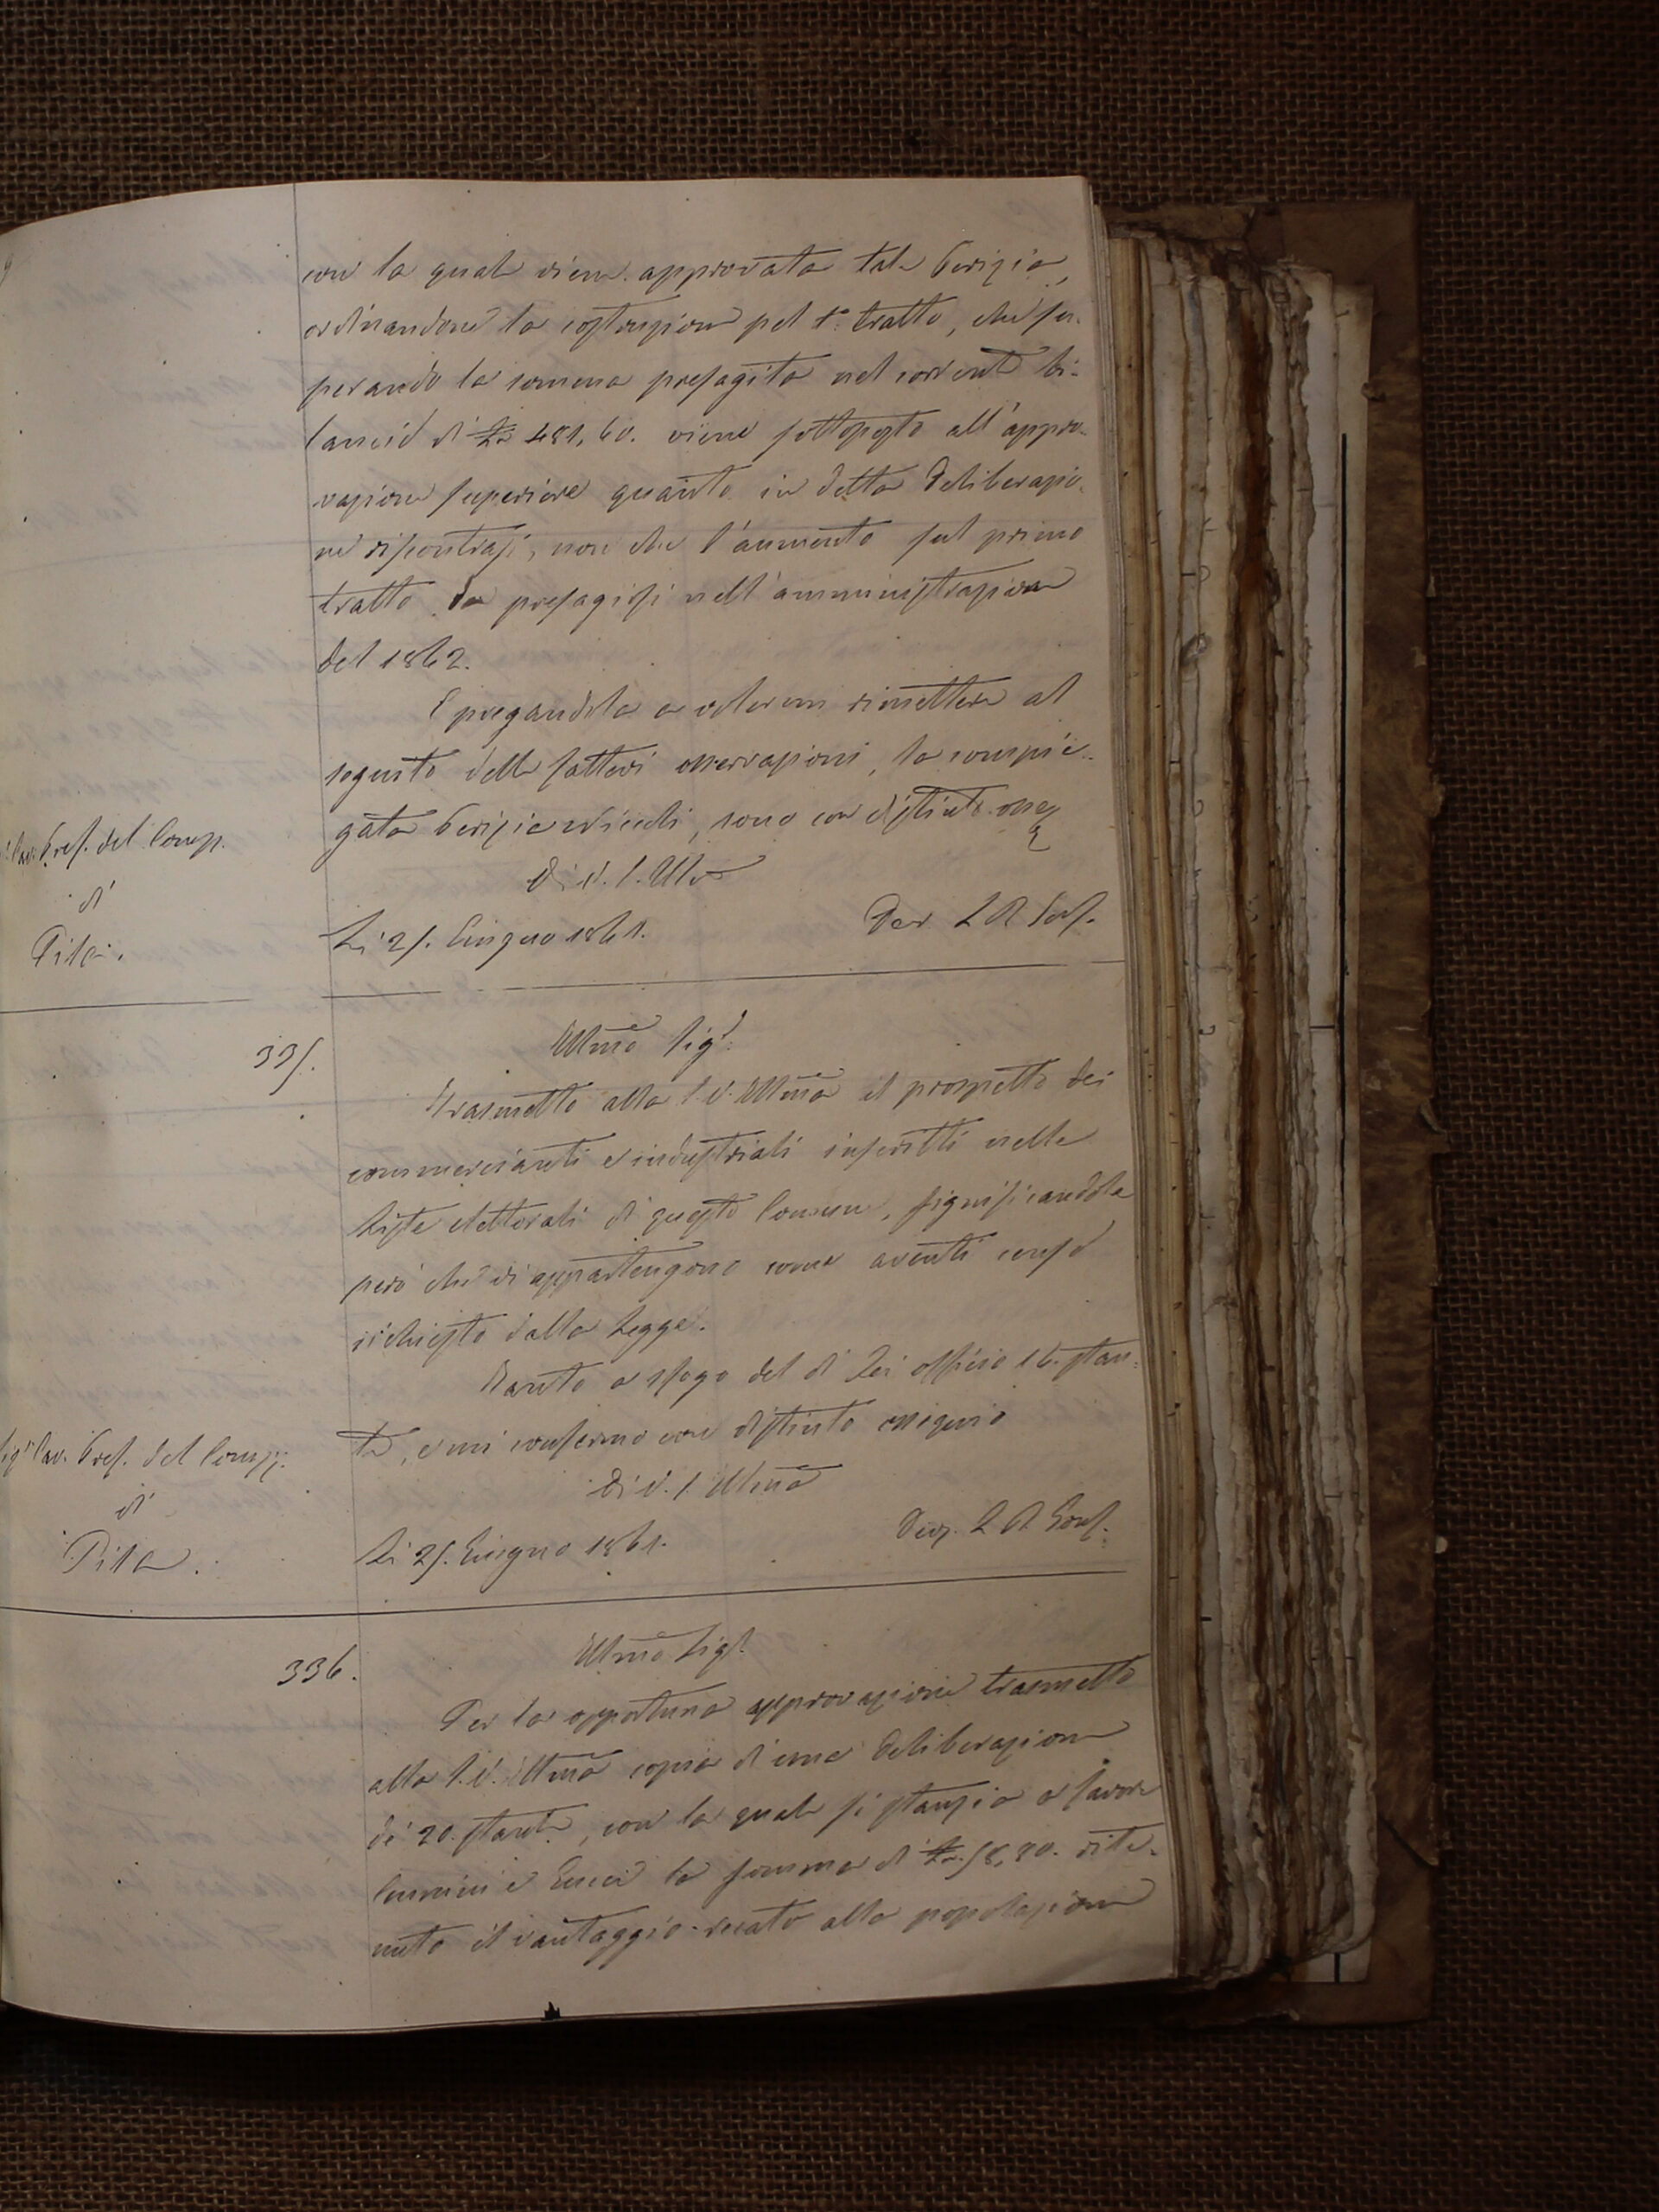 con la quale viene approvata tale Perizia,
ordinandone la costruzione pel 1° tratto, che su-
perando la somma presagita nel corrente bi-
lancio di £ 481,60. viene sottoposto all'appro-
vazione superiore quanto in detta Deliberazio-
ne riscontrasi, non che l'aumento sul primo
tratto da presagirsi nell'amministrazione
del 1862.
E pregandola a volermi rimettere al
seguito delle fattevi osservazioni, la compie-
gata Perizia, sono con distinto osseq
Di V. S. Illma
Li 25. Giugno 1861.
Cav. Pref. del Comp.
di
Pisa.
335.
Illmo Sigr.
Trasmetto alla S. V. Illma il prospetto dei
commercianti e industriali inscritti nelle
Liste elettorali di questo Comune, significandole
però che vi appartengono come aventi censo
richiesto dalla Legge.
Tanto a sfogo del di Lei officio 16. stan-
te, e mi confermo con distinto ossequio
Di V. S. Illma
Li 25. Giugno 1861.
Sigr Cav. Pref. del Comp.
di
Pisa.
336.
Illmo Sigr.
Per la opportuna approvazione trasmetto
alla S. V. Illma copia d'una Deliberazione
de' 20. stante, con la quale si stanzia a favore
la somma di £ 58,80. rite-
nuto il vantaggio recato alla popolazione